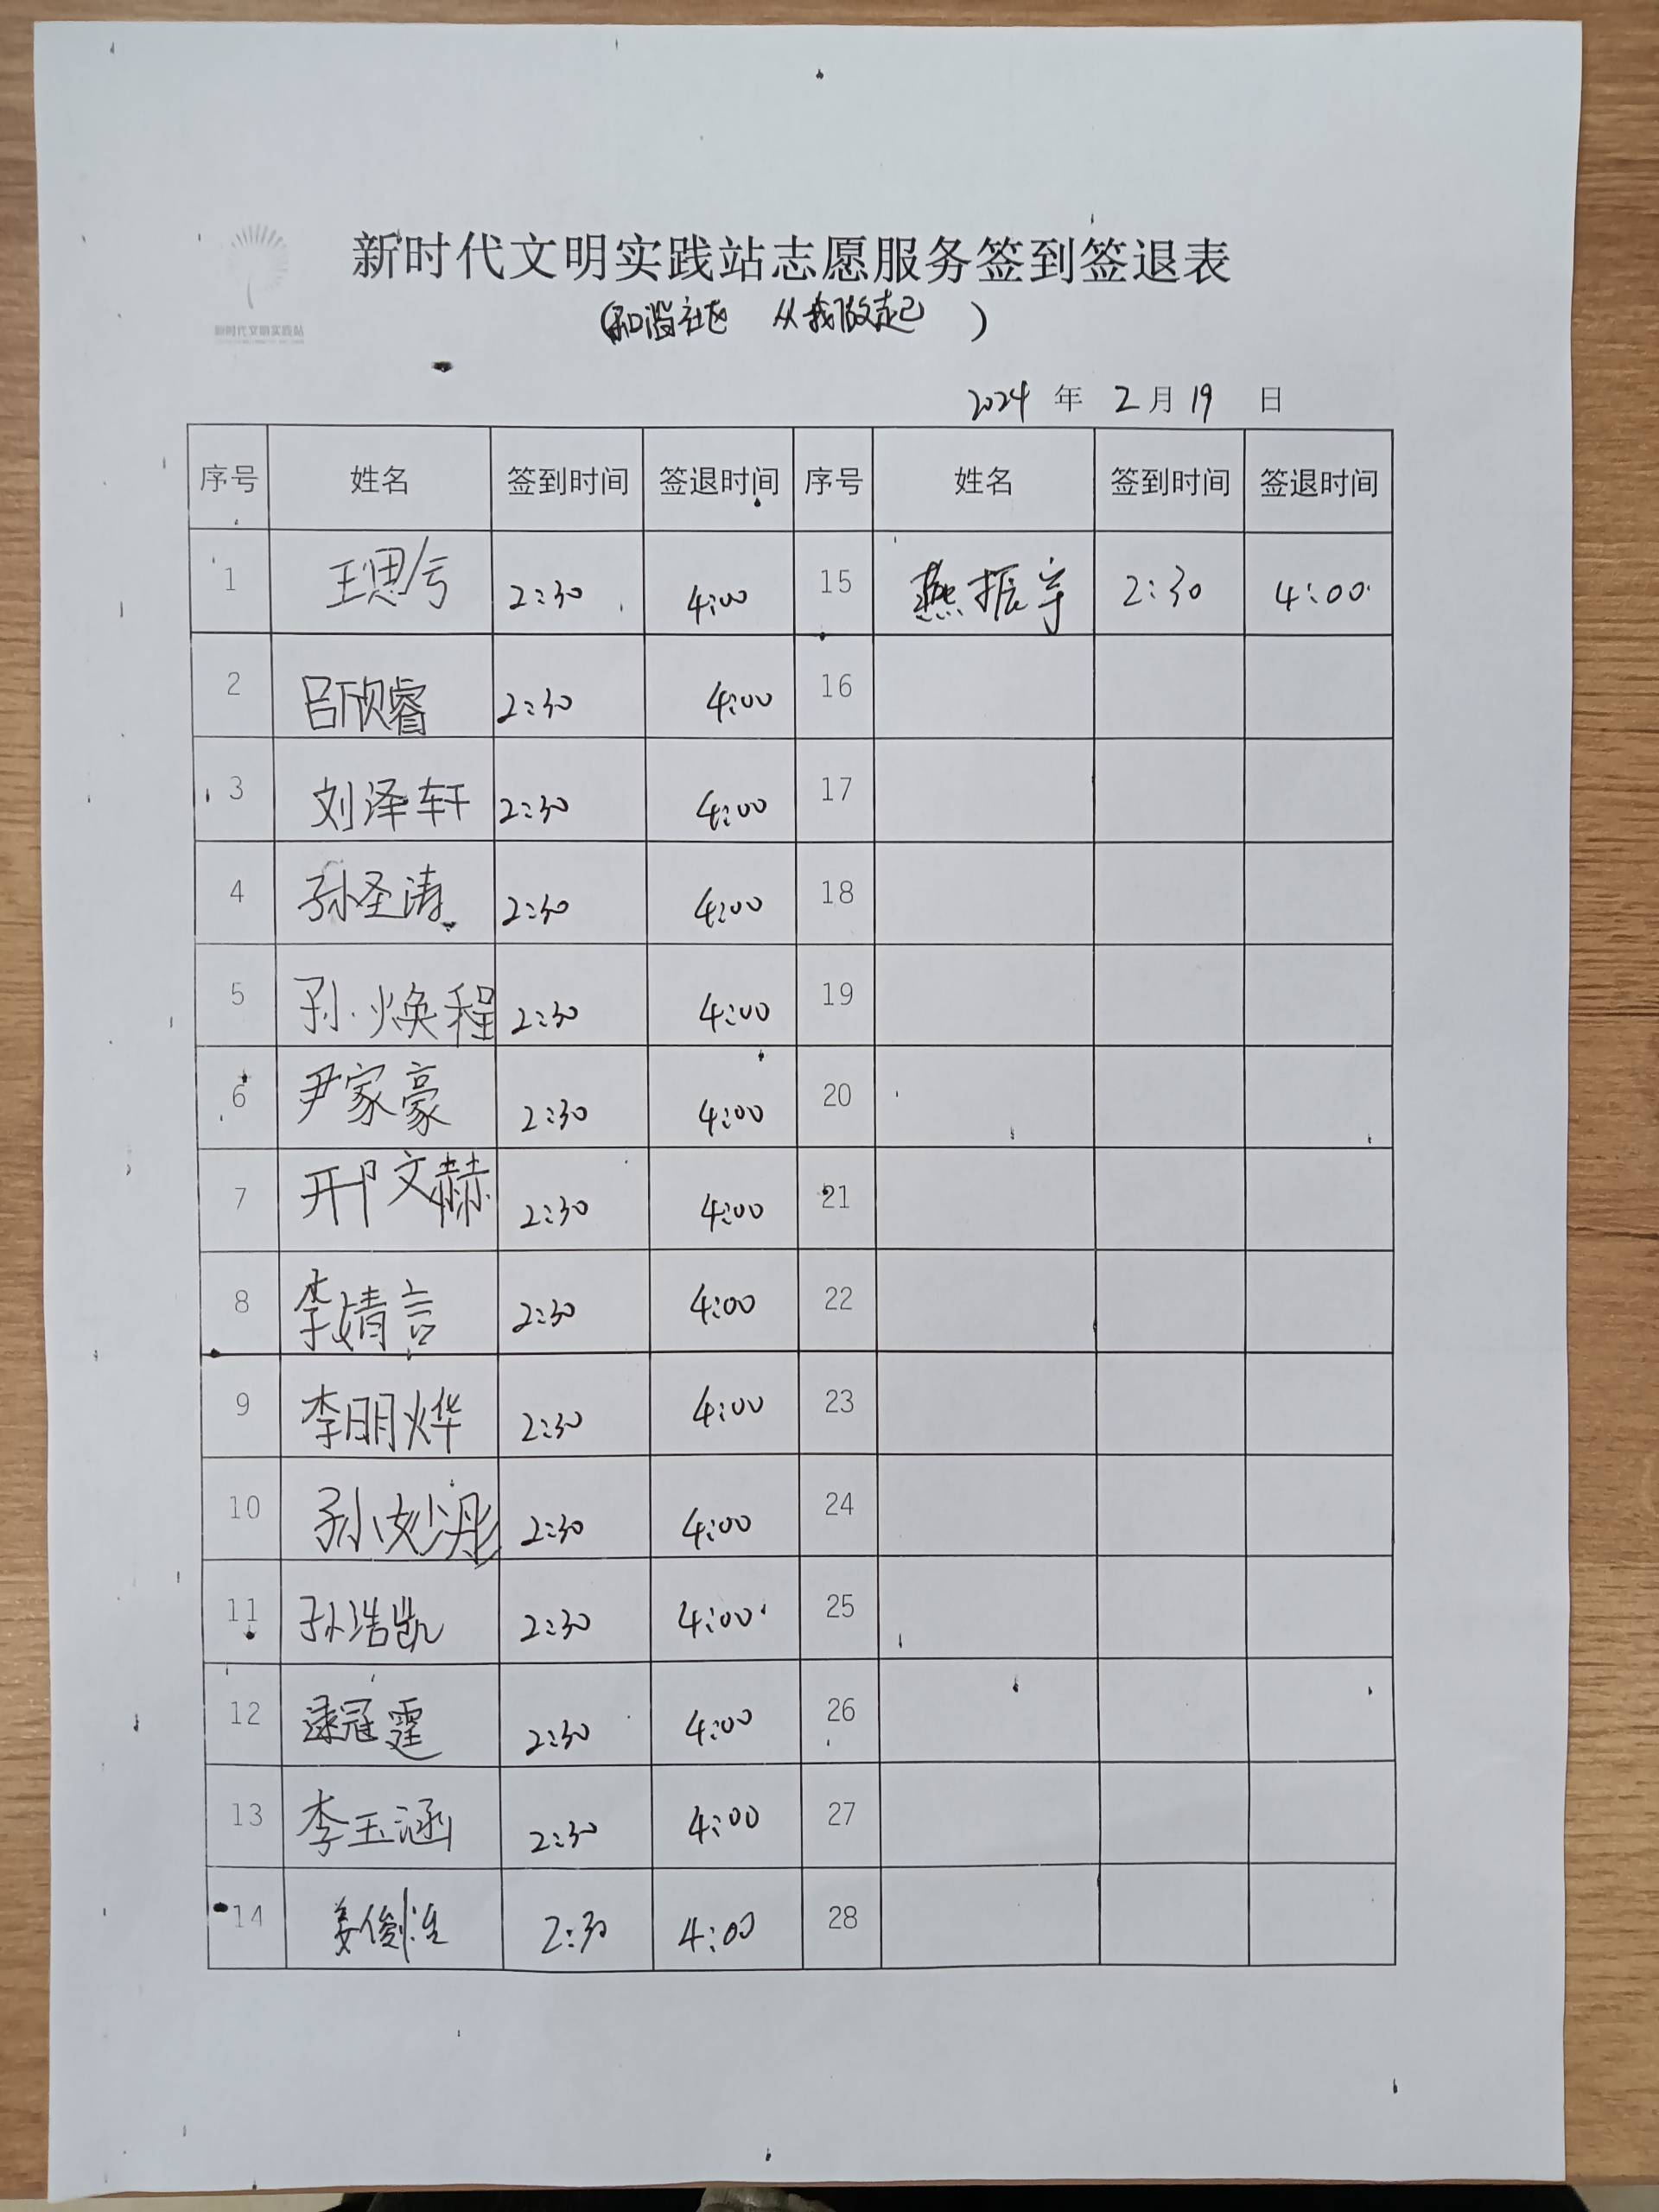 新时代文明实践站志愿服务签到签退表
新时代文明实践站
(和谐社区 从我做起 )
2024 年 2 月 19 日
序号 姓名 签到时间 签退时间 序号 姓名 签到时间 签退时间
1 王思兮 2:30 4:00 15 燕振宇 2:30 4:00
2 吕欣睿 2:30 4:00 16
3 刘泽轩 2:30 4:00 17
4 孙圣涛 2:30 4:00 18
5 孙焕程 2:30 4:00 19
6 尹家豪 2:30 4:00 20
7 邢文赫 2:30 4:00 21
8 李婧言 2:30 4:00 22
9 李明烨 2:30 4:00 23
10 孙妙彤 2:30 4:00 24
11 孙浩凯 2:30 4:00 25
12 逯冠霆 2:30 4:00 26
13 李玉涵 2:30 4:00 27
14 姜俊 2:30 4:00 28